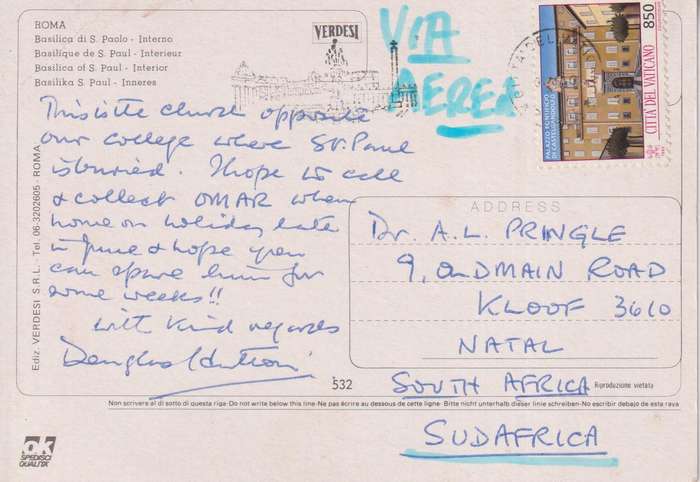 ROMA
Basilica di S. Paolo - Interno
Basilique de S. Paul - Interieur
Basilica of S. Paul - Interior
Basilika S. Paul - Inneres
VERDESI
VIA
AEREA
850
CITTÀ DEL VATICANO
PALAZZO PONTIFICIO
DI CASTELGANDOLFO
This is the church opposite
our college where St. Paul
is buried. I hope to call
& collect OMAR when
home on holiday late
in June & hope you
can spare him for
some weeks!!
With kind regards
Douglas
Ediz. VERDESI S.R.L. - Tel. 06-3202605 - ROMA
ADDRESS
Dr. A.L. PRINGLE
9, OLDMAIN ROAD
KLOOF 3610
NATAL
SOUTH AFRICA
SUDAFRICA
532
Riproduzione vietata
Non scrivere al di sotto di questa riga-Do not write below this line-Ne pas écrire au dessous de cette ligne- Bitte nicht unterhalb dieser linie schreiben-No escribir debajo de esta raya
ok
SPEDISCI
QUALITÀ